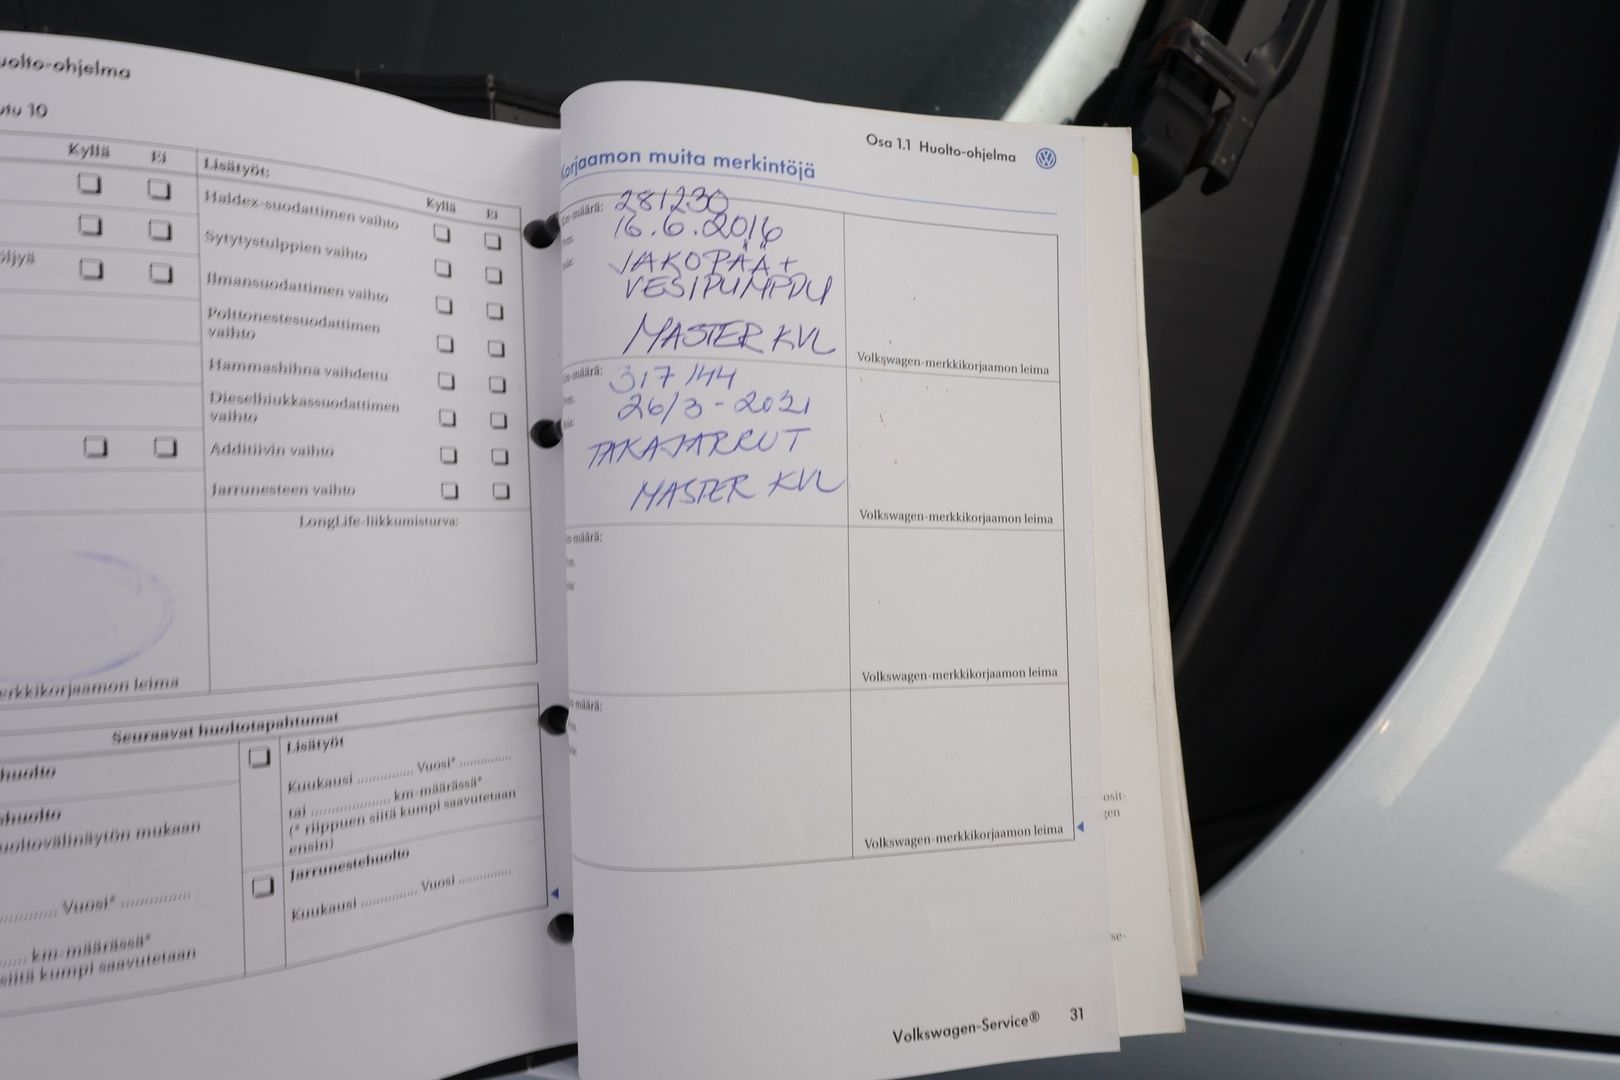 uolto-ohjelma
utu 10
Kyllä Ei
öljyä
Lisätyöt:
Kyllä Ei
Haldex-suodattimen vaihto
Sytytystulppien vaihto
Ilmansuodattimen vaihto
Polttonestesuodattimen
vaihto
Hammashihna vaihdettu
Dieselhiukkassuodattimen
vaihto
Additiivin vaihto
Jarrunesteen vaihto
LongLife-liikkumisturva:
erkkikorjaamon leima
Seuraavat huoltotapahtumat
huolto
shuolto
uoltovälinäytön mukaan
............. Vuosi* ...............
...... km-määrässä*
siitä kumpi saavutetaan
Lisätyöt
Kuukausi ............... Vuosi* ..............
tai ..................... km-määrässä*
(* riippuen siitä kumpi saavutetaan
ensin)
Jarrunestehuolto
Kuukausi ............... Vuosi ..............
Osa 1.1 Huolto-ohjelma
Korjaamon muita merkintöjä
Km-määrä: 281230
Pvm. 16.6.2016
JAKOPÄÄ +
VESIPUMPPU
MASTER KVL
Volkswagen-merkkikorjaamon leima
Km-määrä: 317144
Pvm. 26/3-2021
TAKAJARRUT
MASTER KVL
Volkswagen-merkkikorjaamon leima
m-määrä:
Pvm.
Volkswagen-merkkikorjaamon leima
-määrä:
Volkswagen-merkkikorjaamon leima
osit-
gen
se-
Volkswagen-Service® 31